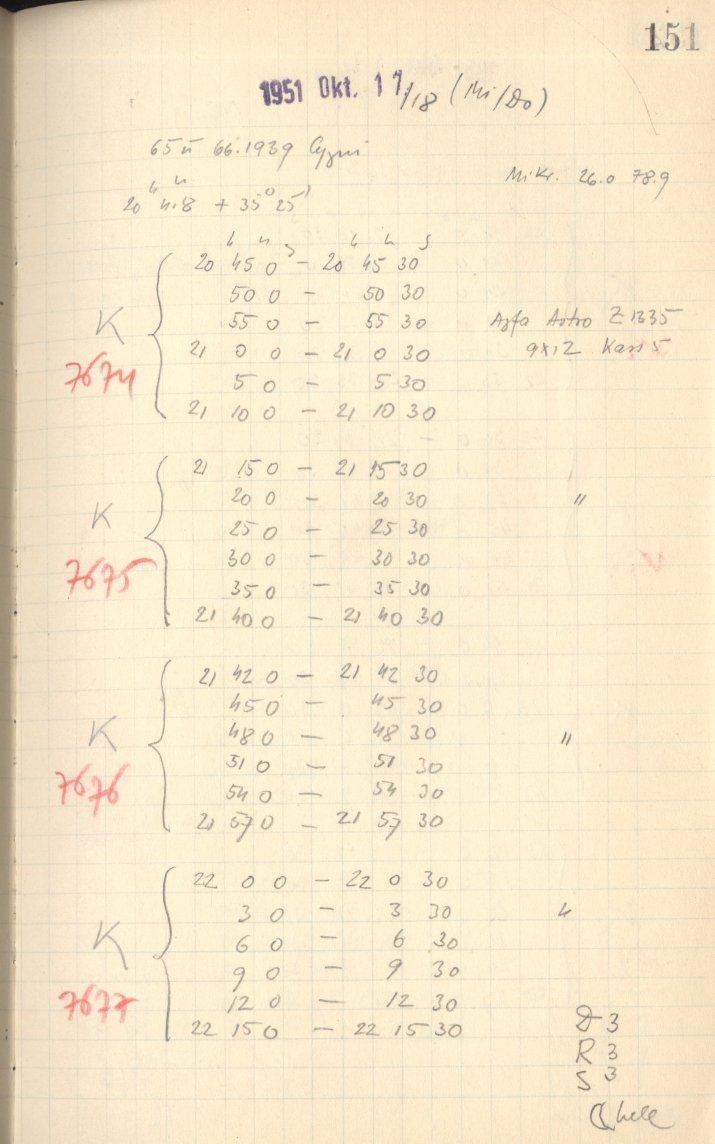 151
1951 Okt. 17/18 (Mi/Do)
65 u 66.1939 Cygni
Mikr. 26.0 78.9
20ʰ 4ᵐ.8 + 35° 25'
h m s h m s
20 45 0 – 20 45 30
50 0 – 50 30
55 0 – 55 30 Agfa Astro Z 1335
K 21 0 0 – 21 0 30 9x12 Kass 5
7674 5 0 – 5 30
21 10 0 – 21 10 30
21 15 0 – 21 15 30
20 0 – 20 30 "
K 25 0 – 25 30
7675 30 0 – 30 30
35 0 – 35 30
21 40 0 – 21 40 30
21 42 0 – 21 42 30
45 0 – 45 30
K 48 0 – 48 30 "
51 0 – 51 30
7676 54 0 – 54 30
21 57 0 – 21 57 30
22 0 0 – 22 0 30
3 0 – 3 30 "
K 6 0 – 6 30
9 0 – 9 30
7677 12 0 – 12 30
22 15 0 – 22 15 30
D 3
R 3
S 3
☾ helle